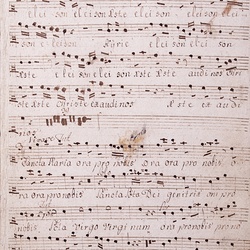 elei son elei son Xste elei son elei son elei
son elei son Kyrie elei son elei son
Xste elei son elei son Xste audi nos Chri
ste Xste Christe exaudi nos Xste ex audi
nos
Sancta Maria ora pro nobis Ora ora pro nobis O
ra ora pro nobis Sancta Dei genitrix ora pro
nobis Virgo Virginum ora pro nobis pro no